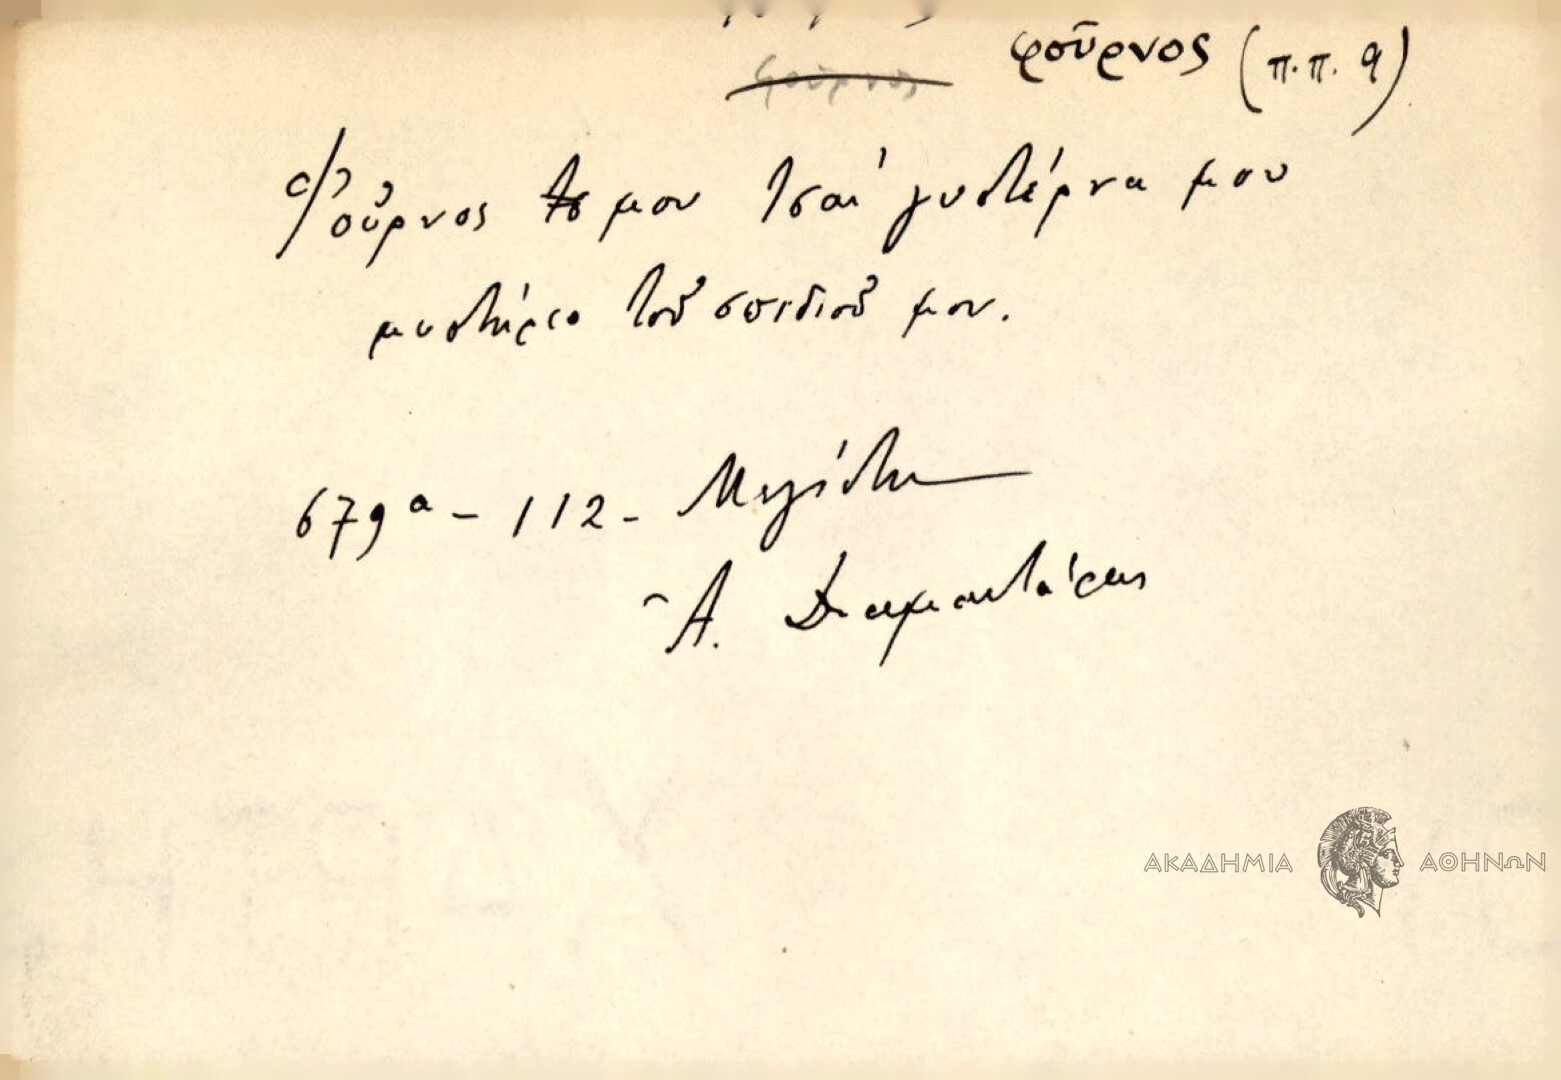 φοῦρνος (π.π. 9)
Φοῦρνος μου τσαὶ γυστέρνα μου
μυστήριο τοῦ σπιδιοῦ μου.
679α - 112 - Μεγίστη
Ἀ. Διαμαντάρας
ΑΚΑΔΗΜΙΑ ΑΘΗΝΩΝ